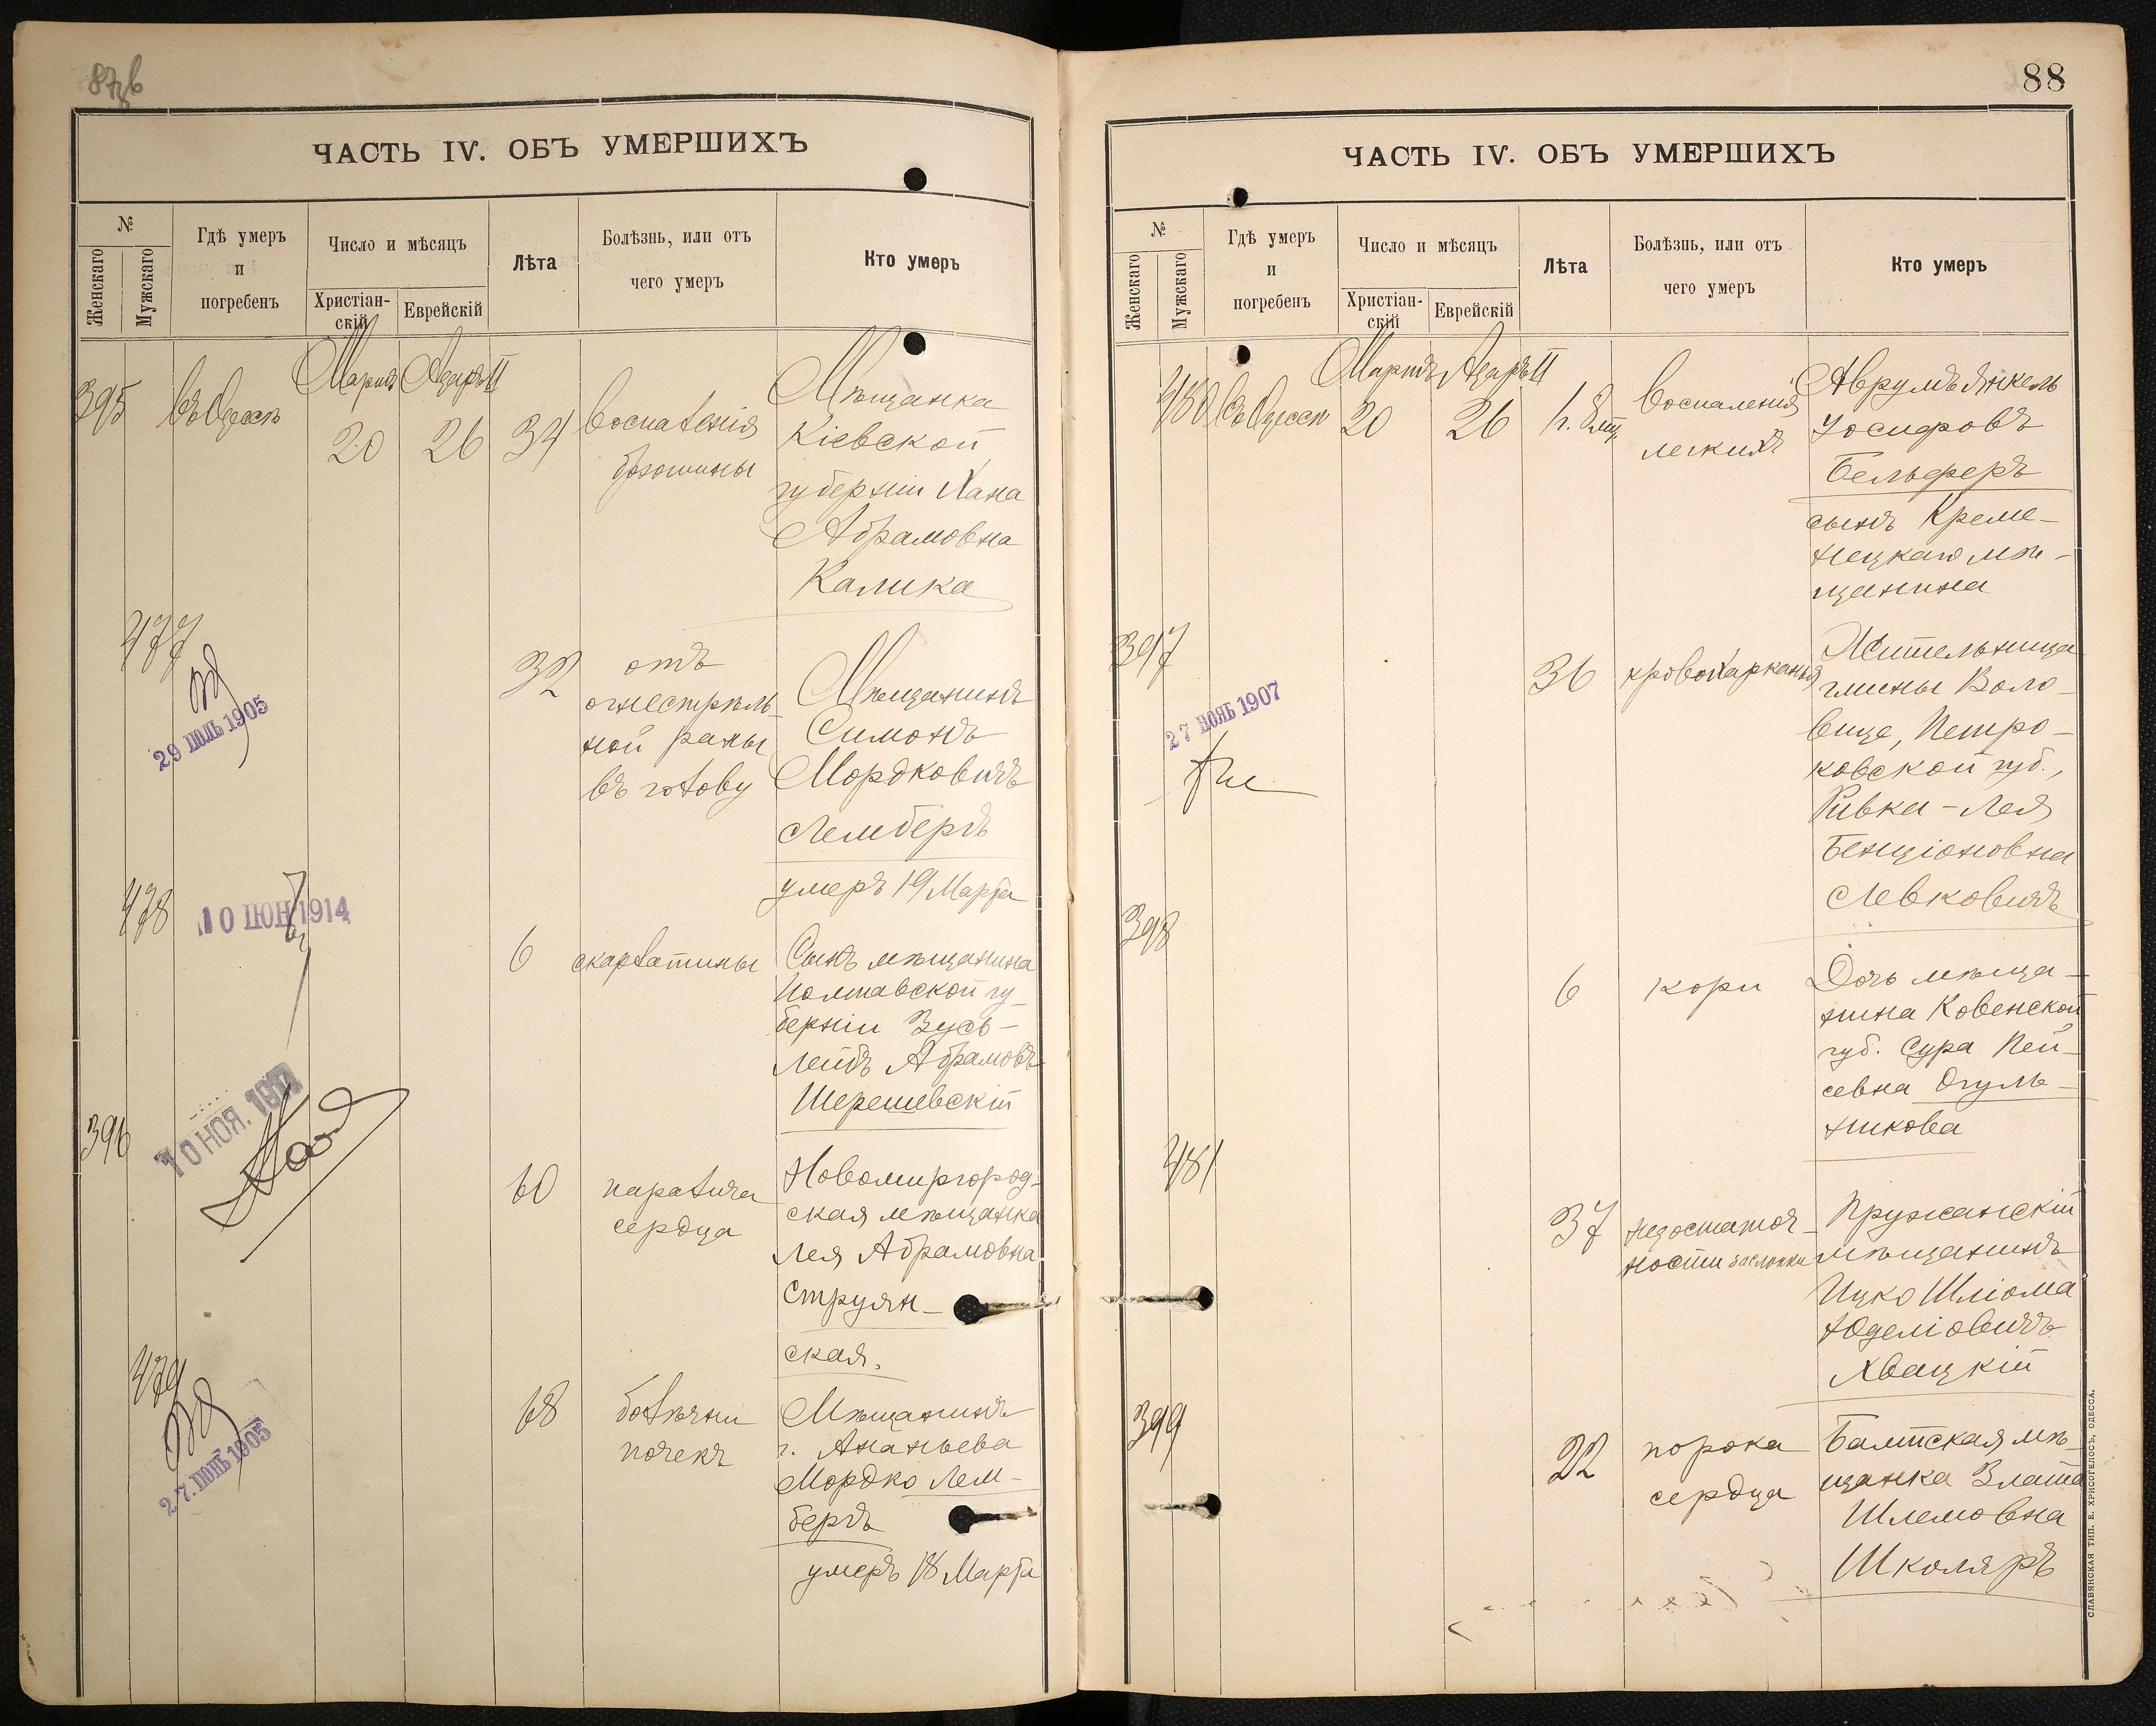 ЧАСТЬ IV. ОБЪ УМЕРШИХЪ
№
Женскаго
Мужскаго
Гдѣ умеръ
и
погребенъ
Число и мѣсяцъ
Христіан-
скій
Еврейскій
Лѣта
Болѣзнь, или отъ
чего умеръ
Кто умеръ
395
въ Одессѣ
Марта
20
Адаръ II
26
34
воспаленія
брюшины
Мѣщанка
Кіевской
губерніи Хана
Абрамовна
Калика
477
29 ІЮЛЬ 1905
32
отъ
огнестрѣль-
ной раны
въ голову
Мѣщанинъ
Симонъ
Мордковичъ
Лембергъ
умеръ 19 Марта
478
10 ІЮН 1914
6
скарлатины
Сынъ мѣщанина
Полтавской гу-
берніи Зусь-
Лейбъ Абрамовъ
Шерешевскій
396
10 НОЯ.
60
паралича
сердца
Новомиргород-
ская мѣщанка
Лея Абрамовна
Струян-
ская.
479
27 ІЮНЬ 1905
68
болѣзни
почекъ
Мѣщанинъ
г. Ананьева
Мордко Лем-
бергъ
умеръ 18 Марта
88
ЧАСТЬ IV. ОБЪ УМЕРШИХЪ
№
Женскаго
Мужскаго
Гдѣ умеръ
и
погребенъ
Число и мѣсяцъ
Христіан-
скій
Еврейскій
Лѣта
Болѣзнь, или отъ
чего умеръ
Кто умеръ
480
въ Одессѣ
Мартъ
20
Адаръ II
26
воспаленія
легкихъ
Аврумъ Янкель
Іосифовъ
Бельферъ
сынъ Креме-
нецкаго мѣ-
щанина
397
27 НОЯБ 1907
36
кровохарканія
Жительница
гмины Воло-
вице, Петро-
ковской губ.,
Ривка-Лея
Бенціоновна
Левковичъ
398
6
кори
Дочь мѣща-
нина Ковенской
губ. Сура Пей-
севна Огуль-
никова
481
37
недостаточ-
ности заслонки
Пружанскій
мѣщанинъ
Ицко Шліома
Юделіовичъ
Хвацкій
399
22
порока
сердца
Балтская мѣ-
щанка Злата
Шлемовна
Школяръ
СЛАВЯНСКАЯ ТИП. Е. ХРИСОГЕЛОСЪ, ОДЕССА.